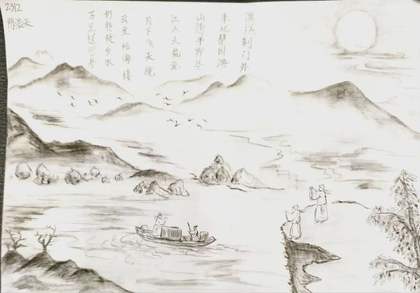 2312
渡远荆门外
来从楚国游
山随平野尽
江入大荒流
月下飞天镜
云生结海楼
仍怜故乡水
万里送行舟